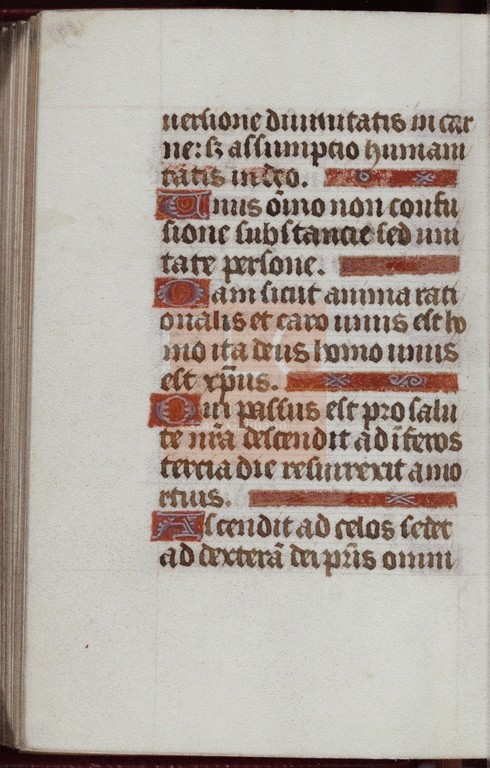 uersione diuinitatis in car
ne: sz assumptio humani
tatis in deo.
Unus oīno non confu
sione substancie sed uni
tate persone.
Nam sicut anima rati
onalis et caro unus est ho
mo ita deus homo unus
est xp̄us.
Qui passus est pro salu
te nr̄a descendit ad īferos
tercia die resurrexit a mo
rtuis.
Ascendit ad celos sedet
ad dexterā dei pr̄is omni